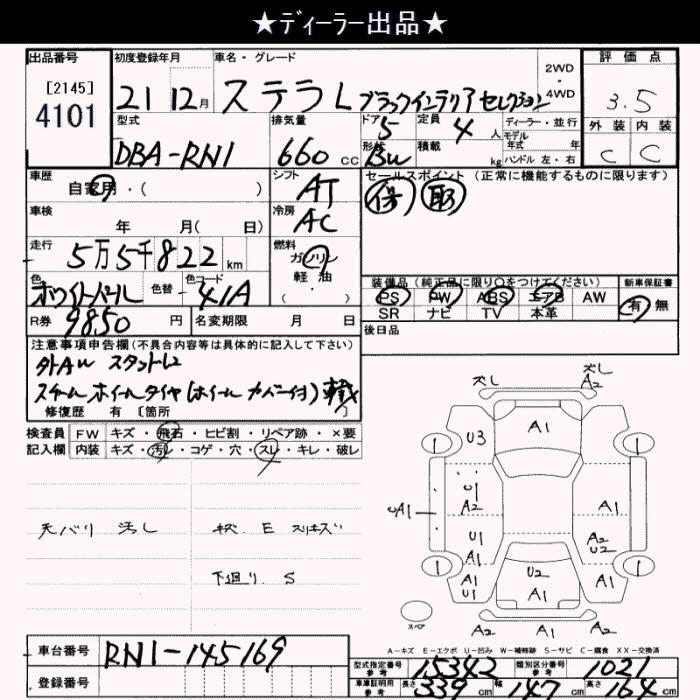 ★ディーラー出品★
出品番号
[2145]
4101
初度登録年月
21 12月
車名・グレード
ステラ L ブラックインテリアセレクション
2WD
・
4WD
評価点
3.5
外装 内装
C C
型式
DBA-RN1
排気量
660 cc
ドア 5
形状 Bu
定員 4 人
積載 kg
ディーラー・並行
モデル
年式 年
ハンドル 左・右
車歴
自家用・( )
シフト
AT
セールスポイント (正常に機能するものに限ります)
保 取
車検
年 月( 日)
冷房
AC
走行
5万5千822 km
燃料
ガソリン
・
軽油
・
( )
色
ホワイトパール
色替
色コード
41A
装備品(純正品に限り○をつけてください)
PS PW ABS エアB AW
SR ナビ TV 本革
新車保証書
有 無
R券 9850 円
名変期限 月 日
後日品
注意事項申告欄(不具合内容等は具体的に記入して下さい)
外AW スタットレス
スチールホイールタイヤ(ホイールカバー付) 載
修復歴 有 〔箇所 〕
検査員
記入欄
FW キズ・飛石・ヒビ割・リペア跡・×要
内装 キズ・汚レ・コゲ・穴・スレ・キレ・破レ
天バリ 汚し
キズ E スリキズ
下廻り S
ズレ
ズレ
A2
A1
U3
1
1
U1
A2
A1
UA1
U1
A1
A2
U2
1
1
A1
U1
U2
A1
A1
スペア
A2
A1
A2
A-キズ E-エクボ U-凹み W-補修跡 S-サビ C-腐食 XX-交換済
車台番号 RN1-145169
登録番号
型式指定番号
参考
15342
類別区分番号
参考
1021
車庫証明用
参考
長さ 339 cm
幅 147 cm
高さ 164 cm